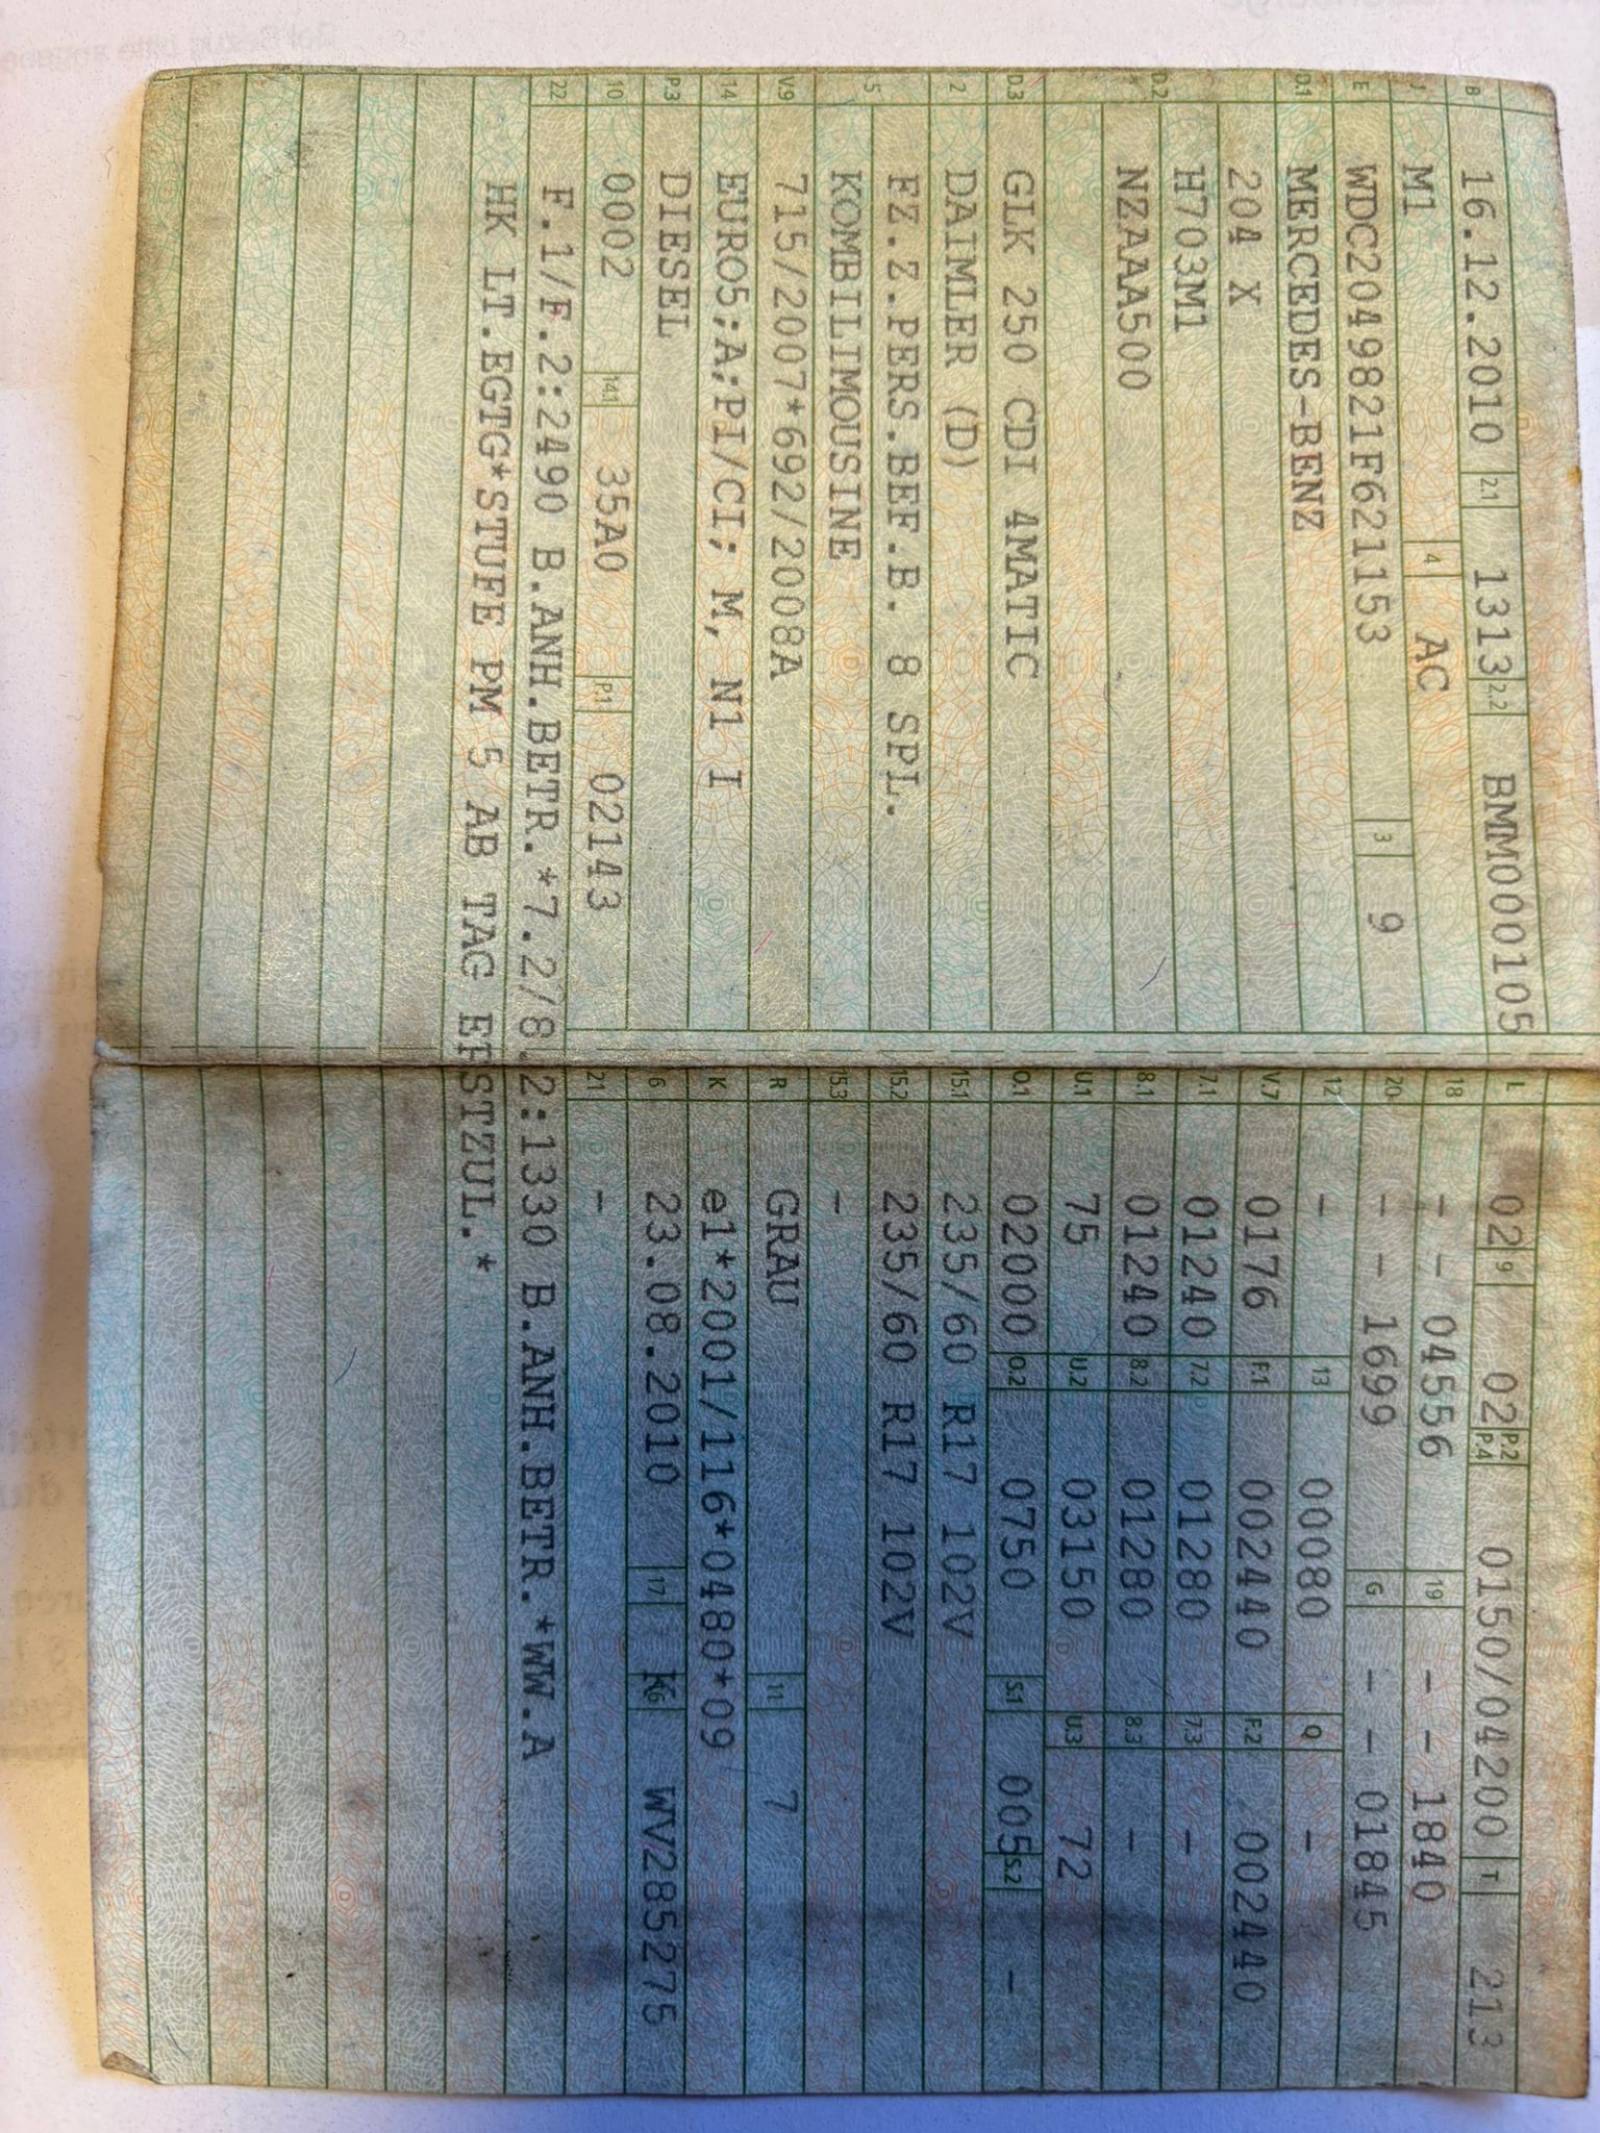 B 16.12.2010 2.1 1313 2.2 BMM000105
J M1 4 AC
E WDC2049821F621153 3 9
D.1 MERCEDES-BENZ
D.2 204 X
H703M1
NZAAA500
D.3 GLK 250 CDI 4MATIC
2 DAIMLER (D)
5 FZ.Z.PERS.BEF.B. 8 SPL.
KOMBILIMOUSINE
V.9 715/2007*692/2008A
14 EURO5;A;PI/CI; M, N1 I
P.3 DIESEL
10 0002 14.1 35A0 P.1 02143
L 02 9 02 P.2 P.4 0150/04200 T 213
18 - - 04556 19 - - 1840
20 - - 1699 G - - 01845
12 - 13 00080 Q -
V.7 0176 F.1 002440 F.2 002440
7.1 01240 7.2 01280 7.3 -
8.1 01240 8.2 01280 8.3 -
U.1 75 U.2 03150 U.3 72
O.1 02000 O.2 0750 S.1 005 S.2 -
15.1 235/60 R17 102V
15.2 235/60 R17 102V
15.3 -
R GRAU 11 7
K e1*2001/116*0480*09
6 23.08.2010 17 K 16 WV285275
21 -
22 F.1/F.2:2490 B.ANH.BETR.*7.2/8.2:1330 B.ANH.BETR.*WW.A
HK LT.EGTG*STUFE PM 5 AB TAG ERSTZUL.*